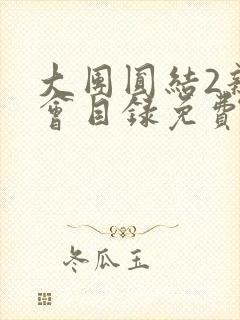 大团圆结2亲
会目录免费
冬瓜玉